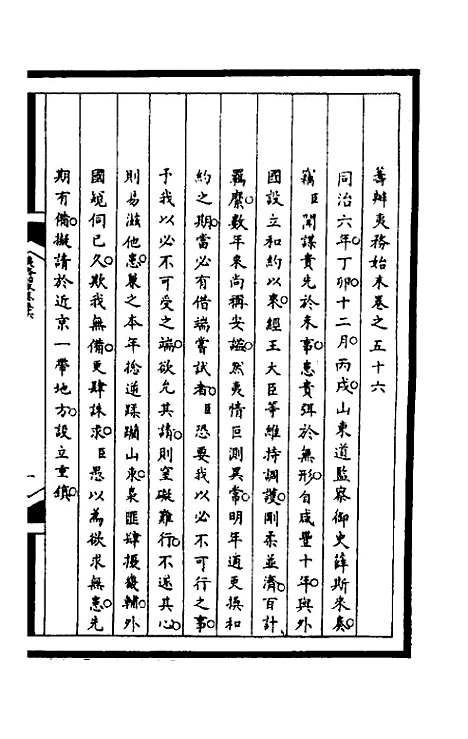 籌辦夷務始末卷之五十六
同治六年丁卯十二月丙戌山東道監察御史薛斯來奏
竊臣聞謀貴先於未事患貴弭於無形自咸豐十年與外
國設立和約以來經王大臣等維持調護剛柔並濟百計
羈縻數年來尚稱安謐然夷情叵測異常明年適更換和
約之期當必有借端嘗試者臣恐要我以必不可行之事
予我以必不可受之端欲允其請則窒礙難行不遂其心
則易滋他患裏之本年捻逆蹂躪山東梟匪肆擾畿輔外
國窺伺已久欺我無備更肆誅求臣愚以為欲求無患先
期有備擬請於近京一帶地方設立重鎮